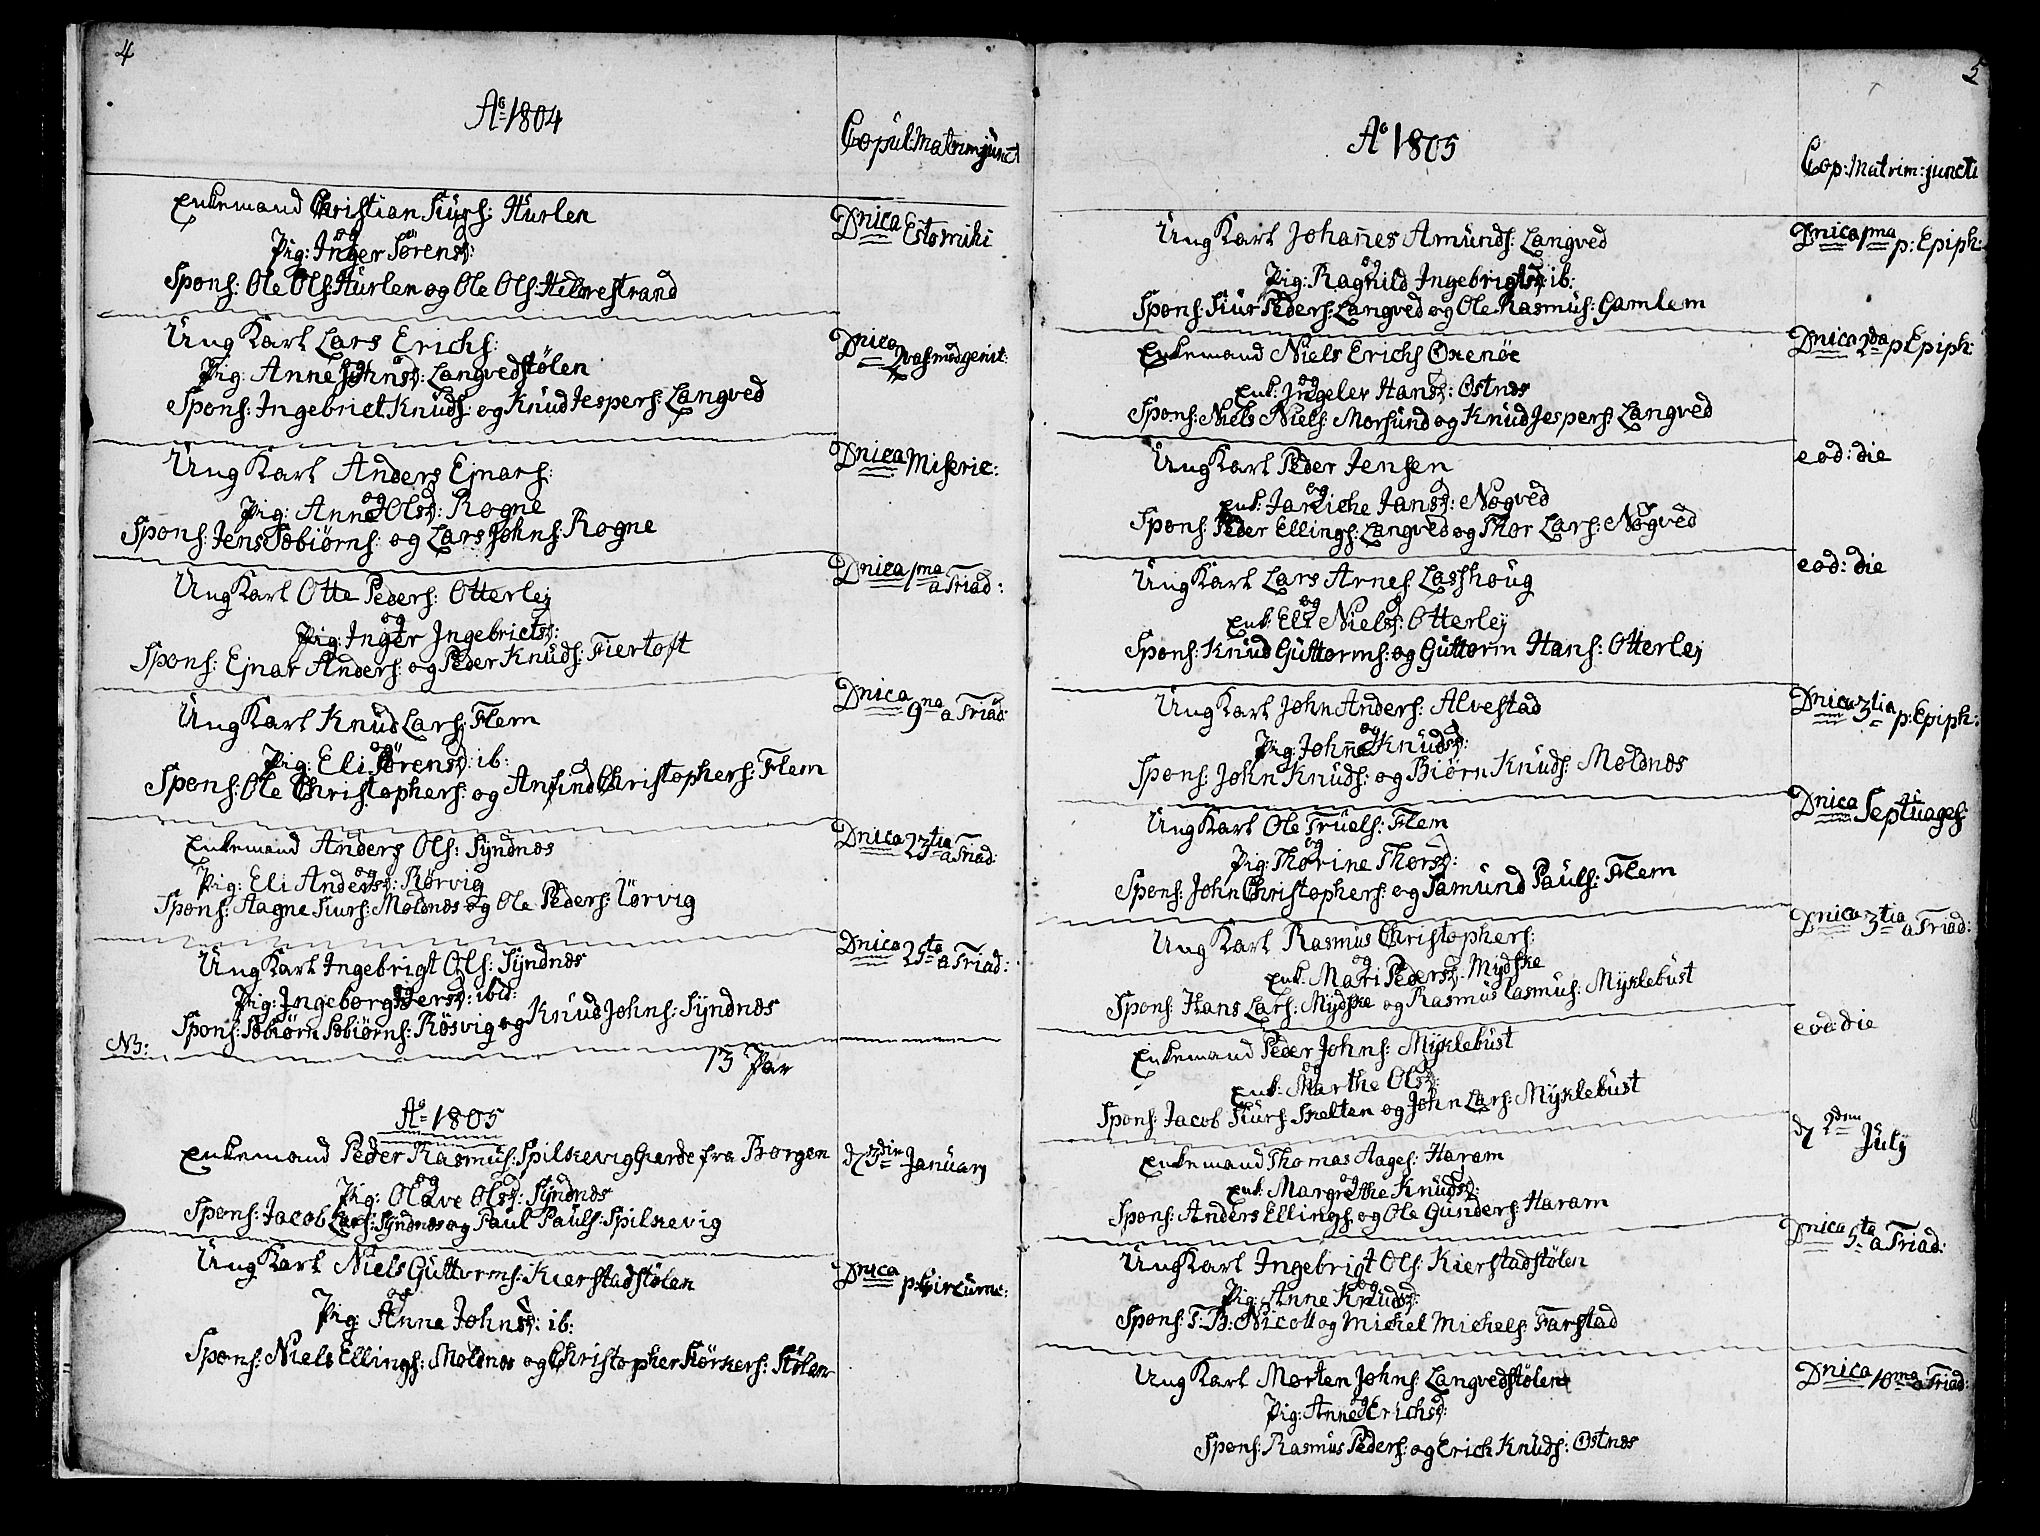 4
Aº 1804
Copul: Matrim junct
Enkemand Christian Siurs: Hurlen
og
Pig: Inger Sörensd:
Spons: Ole Ols: Hurlen og Ole Ols: Hildrestrand
Dnica Estomihi
Ung Karl Lars Erichs:
og
Pig: Anne Johnsd: Langvedstølen
Spons: Ingebrict Knuds: og Knud Jespers: Langved
Dnica Qvasimodgenit:
Ung Karl Anders Ejnars:
og
Pig: Anne Olsd: Rogne
Spons: Jens Tobiörns: og Lars Johns: Rogne
Dnica Miseric:
Ung Karl Otte Peders: Otterlej
og
Pig: Inger Jngebrictsd:
Spons: Ejnar Anders: og Peder Knuds: Fiertoft
Dnica 1ma a Triad:
Ung Karl Knud Lars: Flem
og
Pig: Eli Sörensd: ib:
Spons: Ole Christophers: og Anfind Christophers: Flem
Dnica 9na a Triad:
Enkemand Anders Ols: Syndnæs
og
Pig: Eli Andersd: Rørvig
Spons: Aagne Siurs: Moldnæs og Ole Peders: Rørvig
Dnica 23tia a Triad:
Ung Karl Ingebrigt Ols: Syndnæs
og
Pig: Jngeborg Persd: ibd:
Spons: Tobiörn Tobiörns: Rösvig og Knud Johns: Syndnæs
Dnica 25ta a Triad:
NB:
13 Par
Aº 1805
Enkemand Peder Rasmus: Spilkevig Gierde fra Borgen
og
Pig: Olave Olsd: Syndnæs
Spons: Jacob Lars: Syndnæs og Paul Pauls: Spilkevig
d 3die Januarj
Ung Karl Niels Guttorms: Kierstadstølen
og
Pig: Anne Johnsd: ib:
Spons: Niels Ellings: Moldnæs og Christopher Störkers: Stölen
Dnica p: Circumc:
5
Aº 1805
Cop: Matrim: juncti
Ung Karl Johannes Amunds: Langved
og
Pig: Ragnild Ingebrigtsd: ib:
Spons: Siur Peders: Langved og Ole Rasmus: Gamlem
Dnica 1ma p: Epiph:
Enkemand Niels Erichs Oxenöe
og
Enk: Jngeler Hansd: Ostnæs
Spons: Niels Niels: Morsund og Knud Jespers: Langved
Dnica 2da p Epiph:
Ung Karl Peder Jensen
og
Enk: Jarliche Jansd: Nøgved
Spons: Peder Ellings: Langved og Thor Lars: Nøgved
eod: die
Ung Karl Lars Arnes Lasshoug
og
Enk: Eli Nielsd: Otterlej
Spons: Knud Guttorms: og Guttorm Hans: Otterlej
eod: die
Ung Karl John Anders: Alvestad
og
Pig: Johnne Knudsd:
Spons: John Knuds: og Biørn Knuds: Moldnæs
Dnica 3tia p: Epiph:
Ung Karl Ole Truels: Flem
og
Pig: Thorine Thorsd:
Spons: John Christophers: og Samund Pauls: Flem
Dnica Septuages:
Ung Karl Rasmus Christophers:
og
Enk: Mari Pedersd: Mydske
Spons: Hans Lars: Mydske og Rasmus Rasmus: Myklebust
Dnica 3tia a Triad:
Enkemand Peder Johns: Myklebust
og
Enk: Marthe Olsd:
Spons: Jacob Siurs: Skelten og John Lars: Myklebust
eod: die
Enkemand Thomas Aages: Haram
og
Enk: Margrethe Knudsd:
Spons: Anders Ellings: og Ole Gunders: Haram
d 2den July
Ung Karl Ingebrigt Ols: Kierstadstølen
og
Pig: Anne Knudsd:
Spons: T: B: Nicoll og Michel Michels: Farstad
Dnica 5ta a Triad:
Ung Karl Morten Johns: Langvedstølen
og
Pig: Anne Erichsd:
Spons: Rasmus Peders: og Erich Knuds: Ostnæs
Dnica 10ma a Triad: